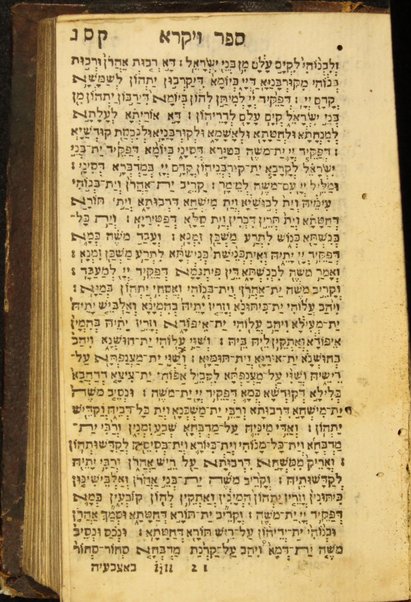 ספר ויקרא קסג
ולבנוהי לקים עלם מן בני ישראל : דא רבות אהרן ורבות
בנוהי מקורבניא דיי ביומא דיקרבון יתהון לשמשא
קדם יי : דפקיד יי למיתן להון ביומא דירבון יתהון מן
בני ישראל קים עלם לדריהון : דא אוריתא לעלתא
למנחתא ולחטתא ולאשמא ולקורבניא ולנכסת קודשיא
: דפקיד יי ית משה בטורא דסיני ביומא דפקיד ית בני
ישראל לקרבא ית קורבניהון קדם יי במדברא דסיני :
ומליל יי עם משה למימר : קריב ית אהרן וית בנוהי
עימיה וית לבושיא וית מישחא דרבותא וית תורא
דחטתא וית תרין דכרין וית סלא דפטיריא : וית כל
כנשתא כנוש לתרע משכן זמנא : ועבד משה כמא
דפקיד יי יתיה ואיתכנישת כנישתא לתרע משכן זמנא :
ואמר משה לכנשתא דין פיתגמא דפקיד יי למעבד :
וקריב משה ית אהרן וית בנוהי ואסחי יתהון במיא :
ויהב עלוהי ית כיתונא וזריז יתיה בהמינא ואלביש יתיה
ית מעילא ויהב עלוהי ית איפודא וזריז יתיה בהמין
איפודא ואתקין ליה ביה : ושוי עלוהי ית חושנא ויהב
בחושנא ית אוריא וית תומיא : ושוי ית מצנפתא על
רישיה ושוי על מצנפתא לקביל אפוהי ית ציצא דדהבא
כלילא דקודשא כמא דפקיד יי ית משה : ונסיב משה
ית מישחא דרבותא ורבי ית משכנא וית כל דביה וקדיש
יתהון : ואדי מיניה על מדבחא שבע זמנין ורבי ית
מדבחא וית כל מנוהי וית כיורא וית בסיסיה לקדשותהון
: ואריק ממשחא דרבותא על ריש אהרן ורבי יתיה
לקדשותיה : וקריב משה ית בני אהרן ואלבישינון
כיתונין וזריז יתהון המינין ואתקין להון קובעין כמא
דפקיד יי ית משה : וקריב ית תורא דחטתא וסמך אהרן
ובנוהי ית ידיהון על ריש תורא דחטתא : ונכס ונסיב
משה ית דמא ויהב על קרנת מדבחא סחור סחור
באצבעיה